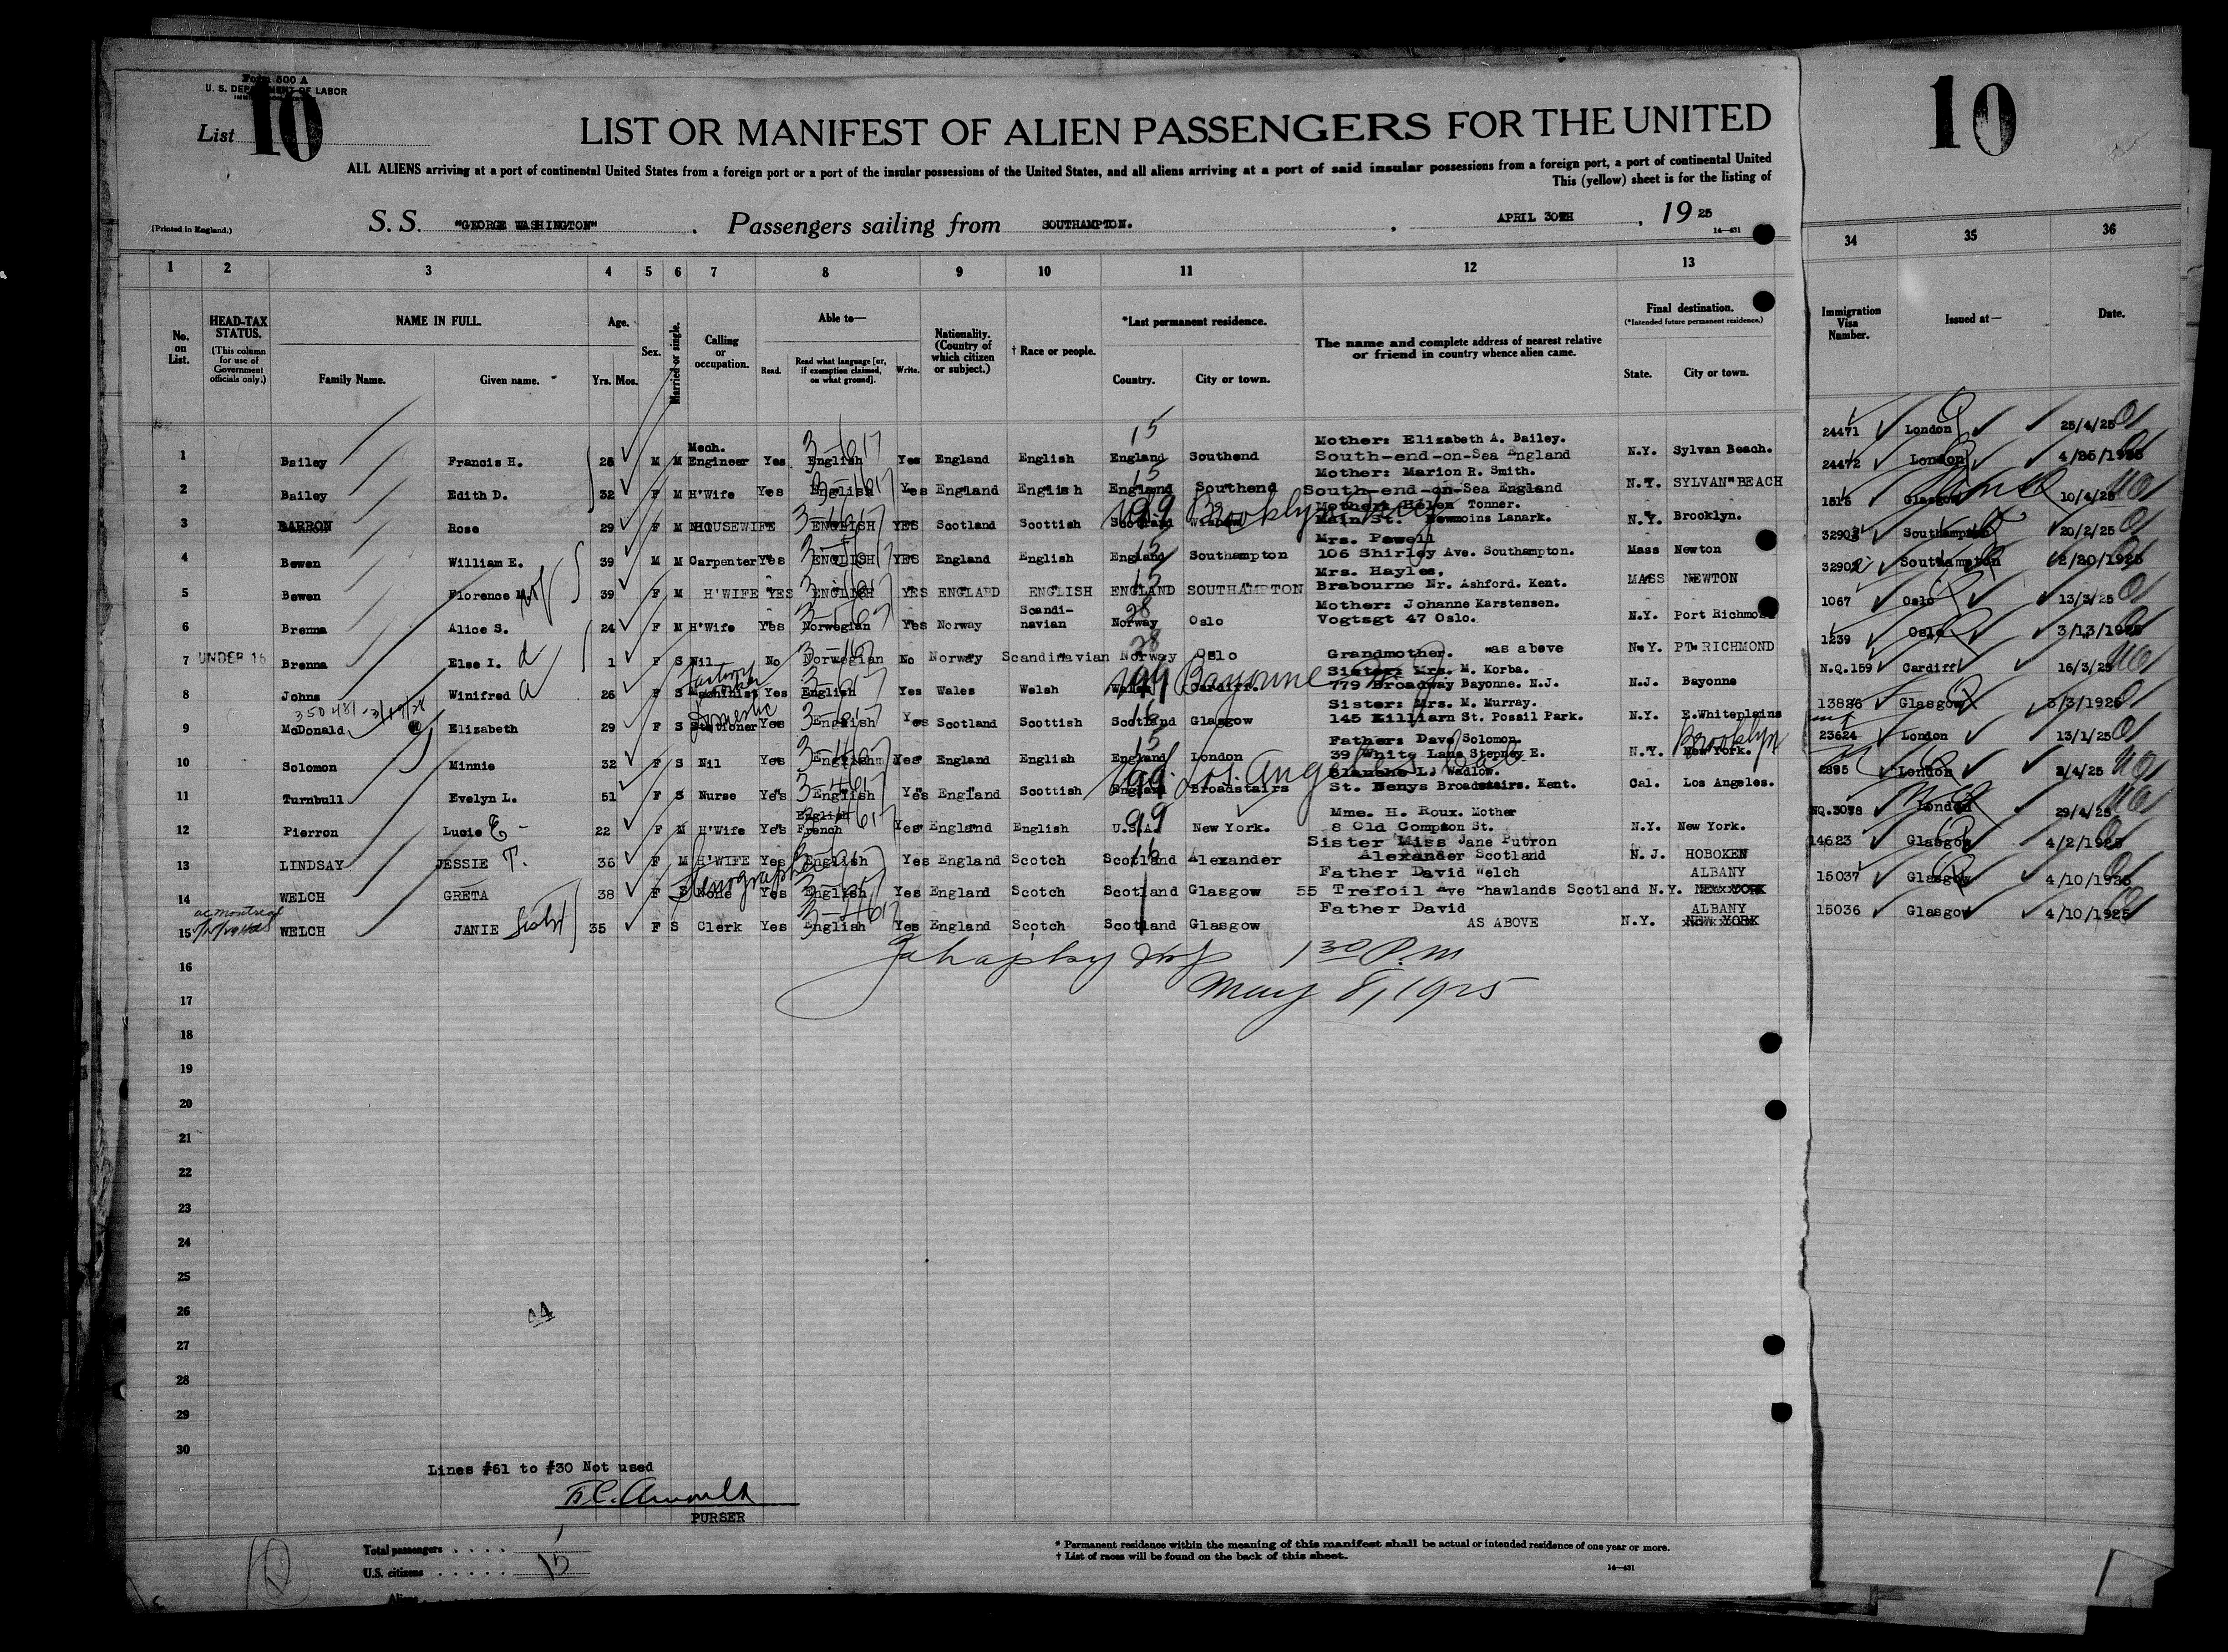 Form 500 A
U. S. DEPARTMENT OF LABOR
List 10
10
LIST OR MANIFEST OF ALIEN PASSENGERS FOR THE UNITED
ALL ALIENS arriving at a port of continental United States from a foreign port or a port of the insular possessions of the United States, and all aliens arriving at a port of said insular possessions from a foreign port, a port of continental United
This (yellow) sheet is for the listing of
(Printed in England.) S. S. "GEORGE WASHINGTON" . Passengers sailing from SOUTHAMPTON. . APRIL 30TH , 19 25
14—431
1 2 3 4 5 6 7 8 9 10 11 12 13 34 35 36
No. on List. HEAD-TAX STATUS. (This column for use of Government officials only.) NAME IN FULL. Family Name. Given name. Age. Yrs. Mos. Sex. Married or single. Calling or occupation. Able to— Read. Read what language [or, if exemption claimed, on what ground]. Write. Nationality. (Country of which citizen or subject.) † Race or people. *Last permanent residence. Country. City or town. The name and complete address of nearest relative or friend in country whence alien came. Final destination. (*Intended future permanent residence.) State. City or town. Immigration Visa Number. Issued at— Date.
1 Bailey Francis H. 25 M M Mech. Engineer Yes English Yes England English England Southend Mother: Elizabeth A. Bailey. South-end-on-Sea England N.Y. Sylvan Beach. 24471 London 25/4/25
2 Bailey Edith D. 32 F M H'Wife Yes English Yes England English England Southend Mother: Marion R. Smith. South-end-on-Sea England N.Y. SYLVAN BEACH 24472 London 4/25/1925
3 BARRON Rose 29 F M HOUSEWIFE ENGLISH YES Scotland Scottish Scotland Brooklyn Mother: Helen Tonner. Main St. Newmoins Lanark. N.Y. Brooklyn. 1515 Glasgow 10/4/25
4 Bowen William E. 39 M M Carpenter Yes ENGLISH YES England English England Southampton Mrs. Powell 106 Shirley Ave. Southampton. Mass Newton Southampton 20/2/25
5 Bowen Florence M. 39 F M H'WIFE YES ENGLISH YES ENGLAND ENGLISH ENGLAND SOUTHAMPTON Mrs. Hayles, Brabourne Nr. Ashford. Kent. MASS NEWTON Southampton 2/20/1925
6 Brenna Alice S. 24 F M H'Wife Yes Norwegian Yes Norway Scandi-navian Norway Oslo Mother: Johanne Karstensen. Vogtsgt 47 Oslo. N.Y. Port Richmond 1067 Oslo 13/3/25
7 UNDER 16 Brenna Else I. 1 F S Nil No Norwegian No Norway Scandinavian Norway Oslo Grandmother. as above N.Y. PT. RICHMOND 1239 Oslo 3/13/1925
8 Johns Winifred 26 F S Machinist Yes English Yes Wales Welsh Wales Cardiff. Bayonne Sister: Mrs. M. Korba. 779 Broadway Bayonne. N.J. N.J. Bayonne N.Q.159 Cardiff 16/3/25
9 McDonald Elizabeth 29 F S Domestic Yes English Yes Scotland Scottish Scotland Glasgow Sister: Mrs. M. Murray. 145 Killiarn St. Possil Park. N.Y. E.Whiteplains 13826 Glasgow 3/3/1925
10 Solomon Minnie 32 F S Nil Yes English Yes England English England London Father: Dave Solomon. 39 White Lane Stepney E. N.Y. New York. Brooklyn 23624 London 13/1/25
11 Turnbull Evelyn L. 51 F S Nurse Yes English Yes England Scottish England Broadstairs Los Angeles Blanche L. Wadlow. St. Denys Broadstairs. Kent. Cal. Los Angeles. 2895 London 2/4/25
12 Pierron Lucie E 22 F M H'Wife Yes English French Yes England English U.S.A. New York. Mme. H. Roux. Mother 8 Old Compton St. N.Y. New York. NQ.3078 London 29/4/25
13 LINDSAY JESSIE T. 36 F M H'WIFE Yes English Yes England Scotch Scotland Alexander Sister Miss Jane Putron Alexander Scotland N.J. HOBOKEN 14623 Glasgow 4/2/1925
14 WELCH GRETA 38 F S None Stenographer Yes English Yes England Scotch Scotland Glasgow Father David Welch 55 Trefoil Ave Shawlands Scotland N.Y. ALBANY NEW YORK 15037 Glasgow 4/10/1925
15 WELCH JANIE Sister 35 F S Clerk Yes English Yes England Scotch Scotland Glasgow Father David AS ABOVE N.Y. ALBANY NEW YORK 15036 Glasgow 4/10/1925
16 1 30 P.M
17 May 8, 1925
18
19
20
21
22
23
24
25
26
27
28
29
30
Lines #61 to #30 Not used
PURSER
Total passengers . . . .
U.S. citizens . . . . . 15
* Permanent residence within the meaning of this manifest shall be actual or intended residence of one year or more.
† List of races will be found on the back of this sheet.
14—431